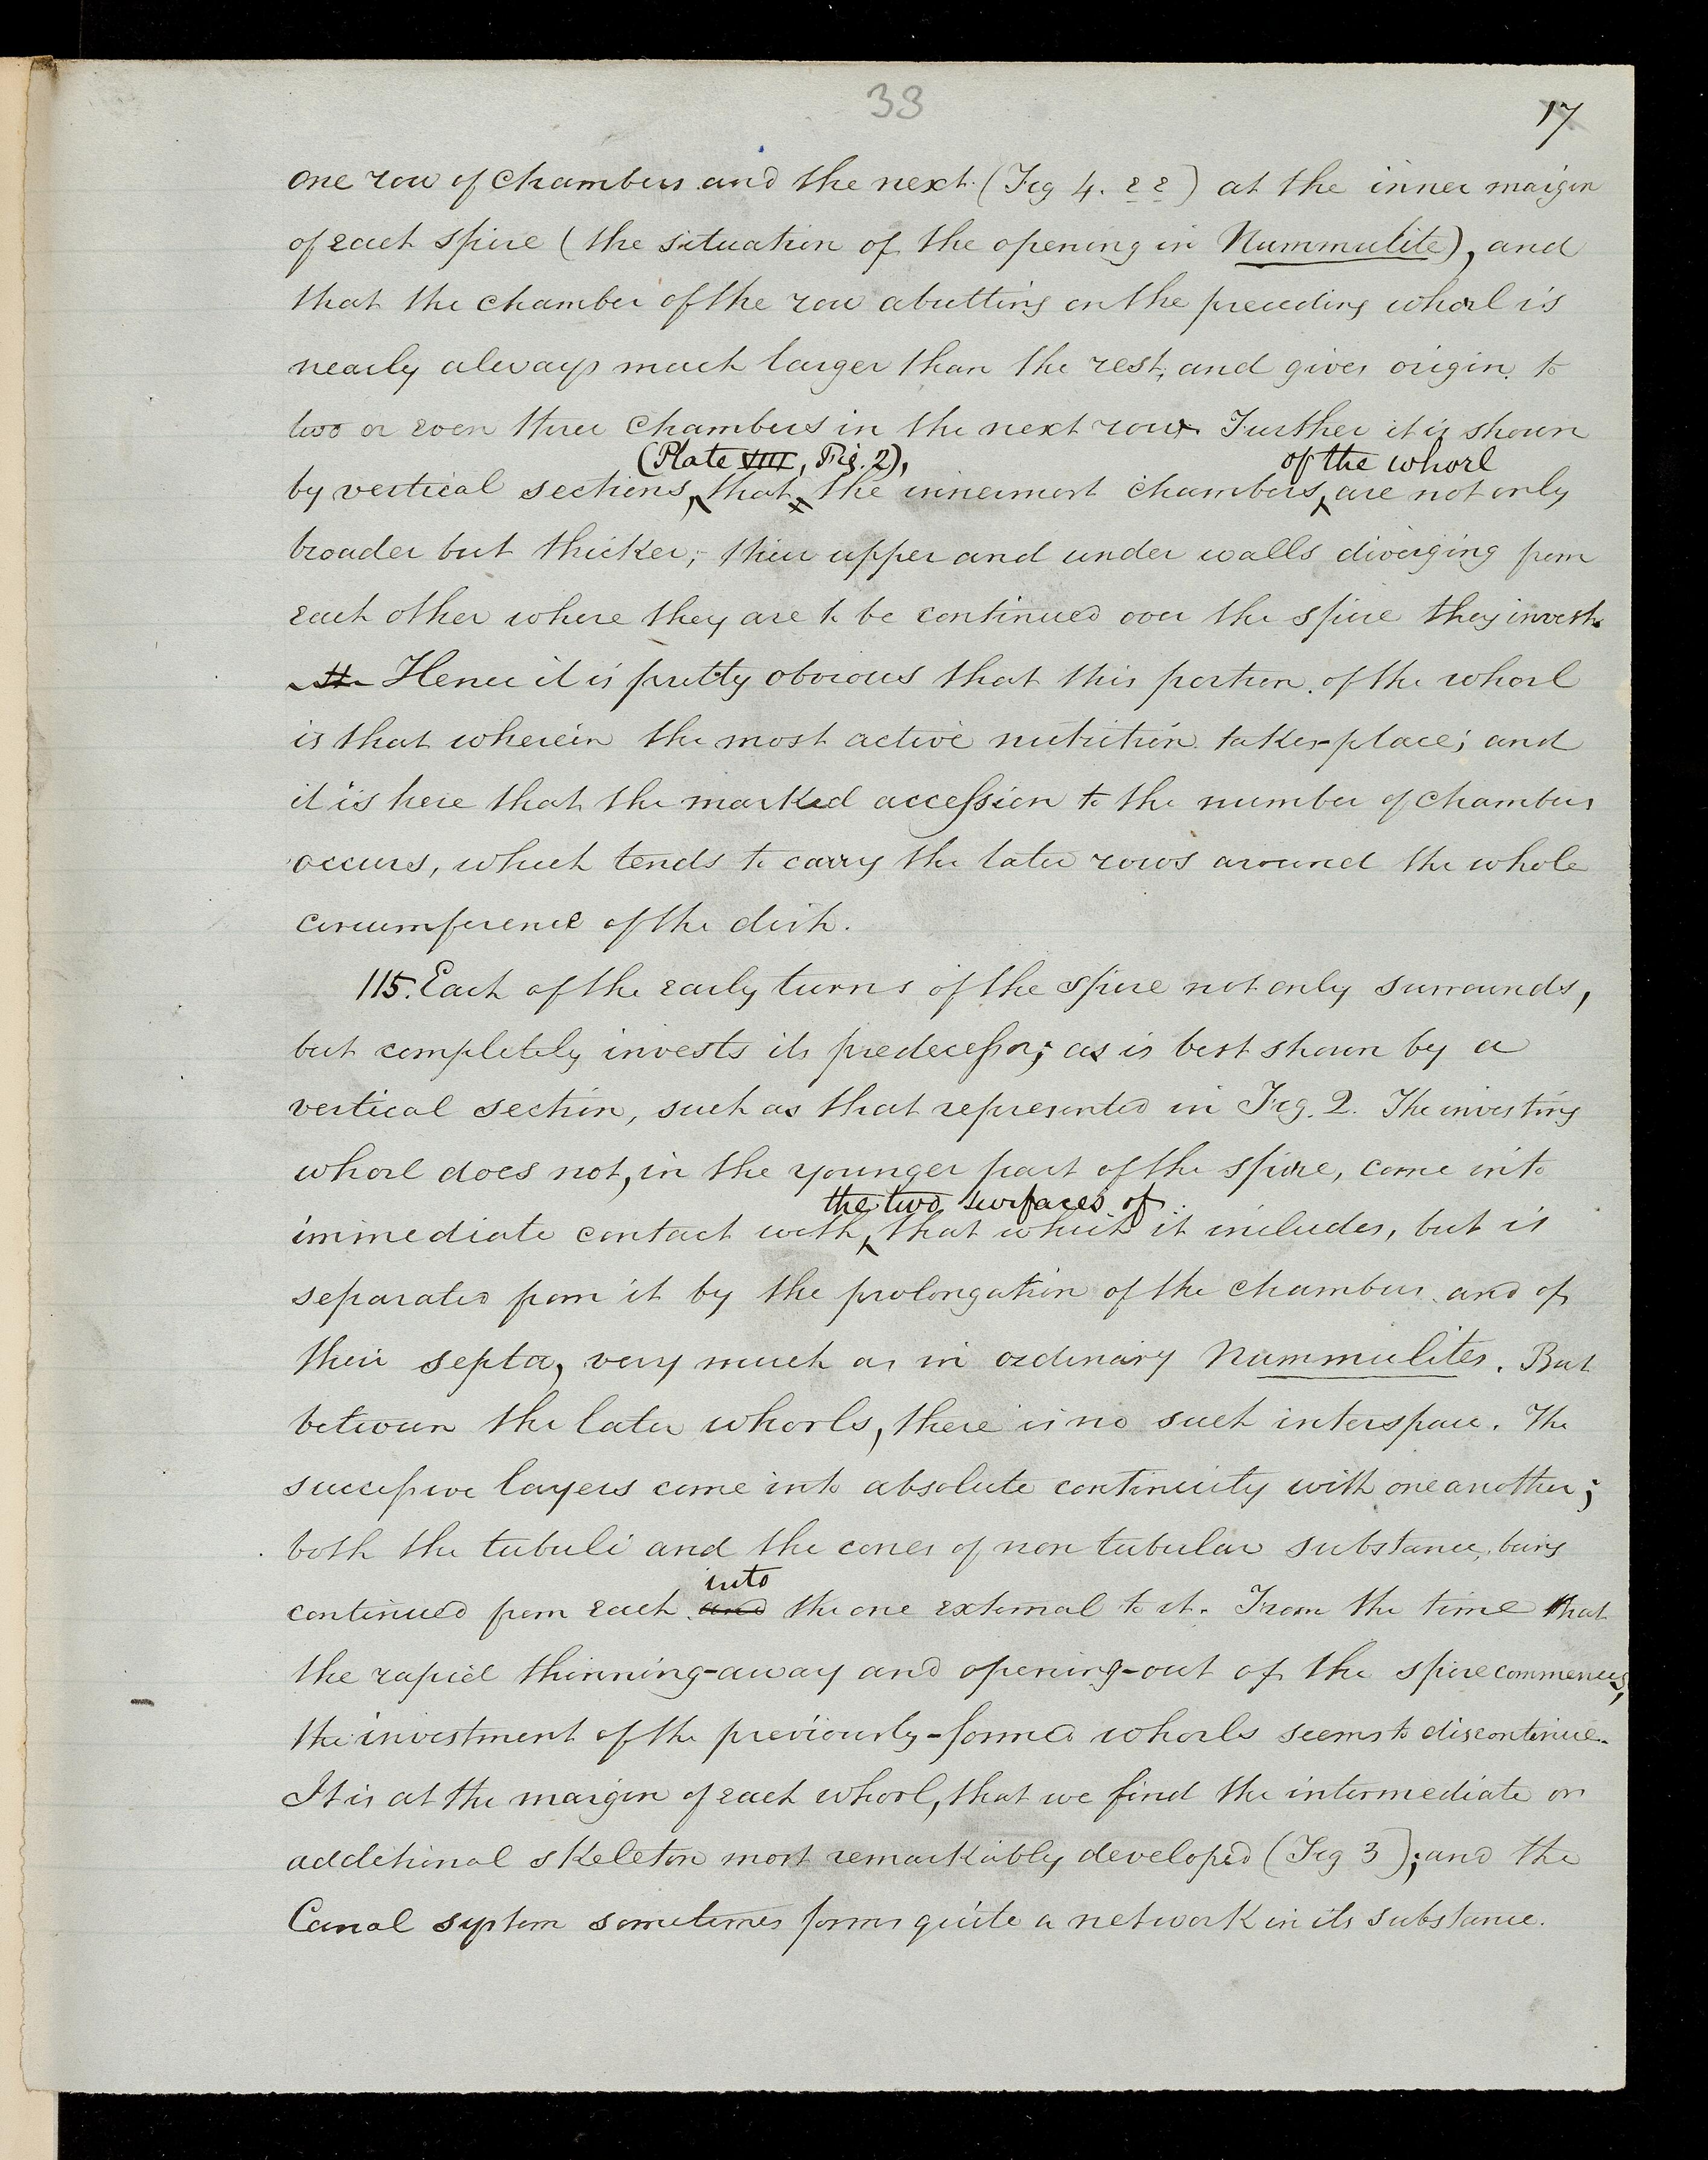 33
17
one row of chambers and the next (Fig 4. e e) at the inner margin
of each spire (the situation of the opening in Nummulite), and
that the chamber of the row abutting on the preceding whorl is
nearly always much larger than the rest, and gives origin to
two or even three chambers in the next row. Further it is shown
(Plate VIII, Fig. 2), of the whorl
by vertical sections, that the innermost chambers are not only
broader but thicker, their upper and under walls diverging from
each other where they are to be continued over the spire they invest.
Hence it is pretty obvious that this portion of the whorl
is that wherein the most active nutrition takes-place; and
it is here that the marked accession to the number of chambers
occurs, which tends to carry the later rows around the whole
circumference of the disk.
115. Each of the early turns of the spire not only surrounds,
but completely invests its predecessor; as is best shown by a
vertical section, such as that represented in Fig. 2. The investing
whorl does not, in the younger part of the spire, come into
the two surfaces of
immediate contact with that which it includes, but is
separated from it by the prolongation of the chambers and of
their septa, very much as in ordinary Nummulites. But
between the later whorls, there is no such interspace. The
successive layers come into absolute continuity with one another;
both the tubuli and the cones of non tubular substance, being
into
continued from each and the one external to it. From the time that
the rapid thinning-away and opening-out of the spire commences,
the investment of the previously-formed whorls seems to discontinue.
It is at the margin of each whorl, that we find the intermediate or
additional skeleton most remarkably developed (Fig 3); and the
Canal system sometimes forms quite a network in its substance.